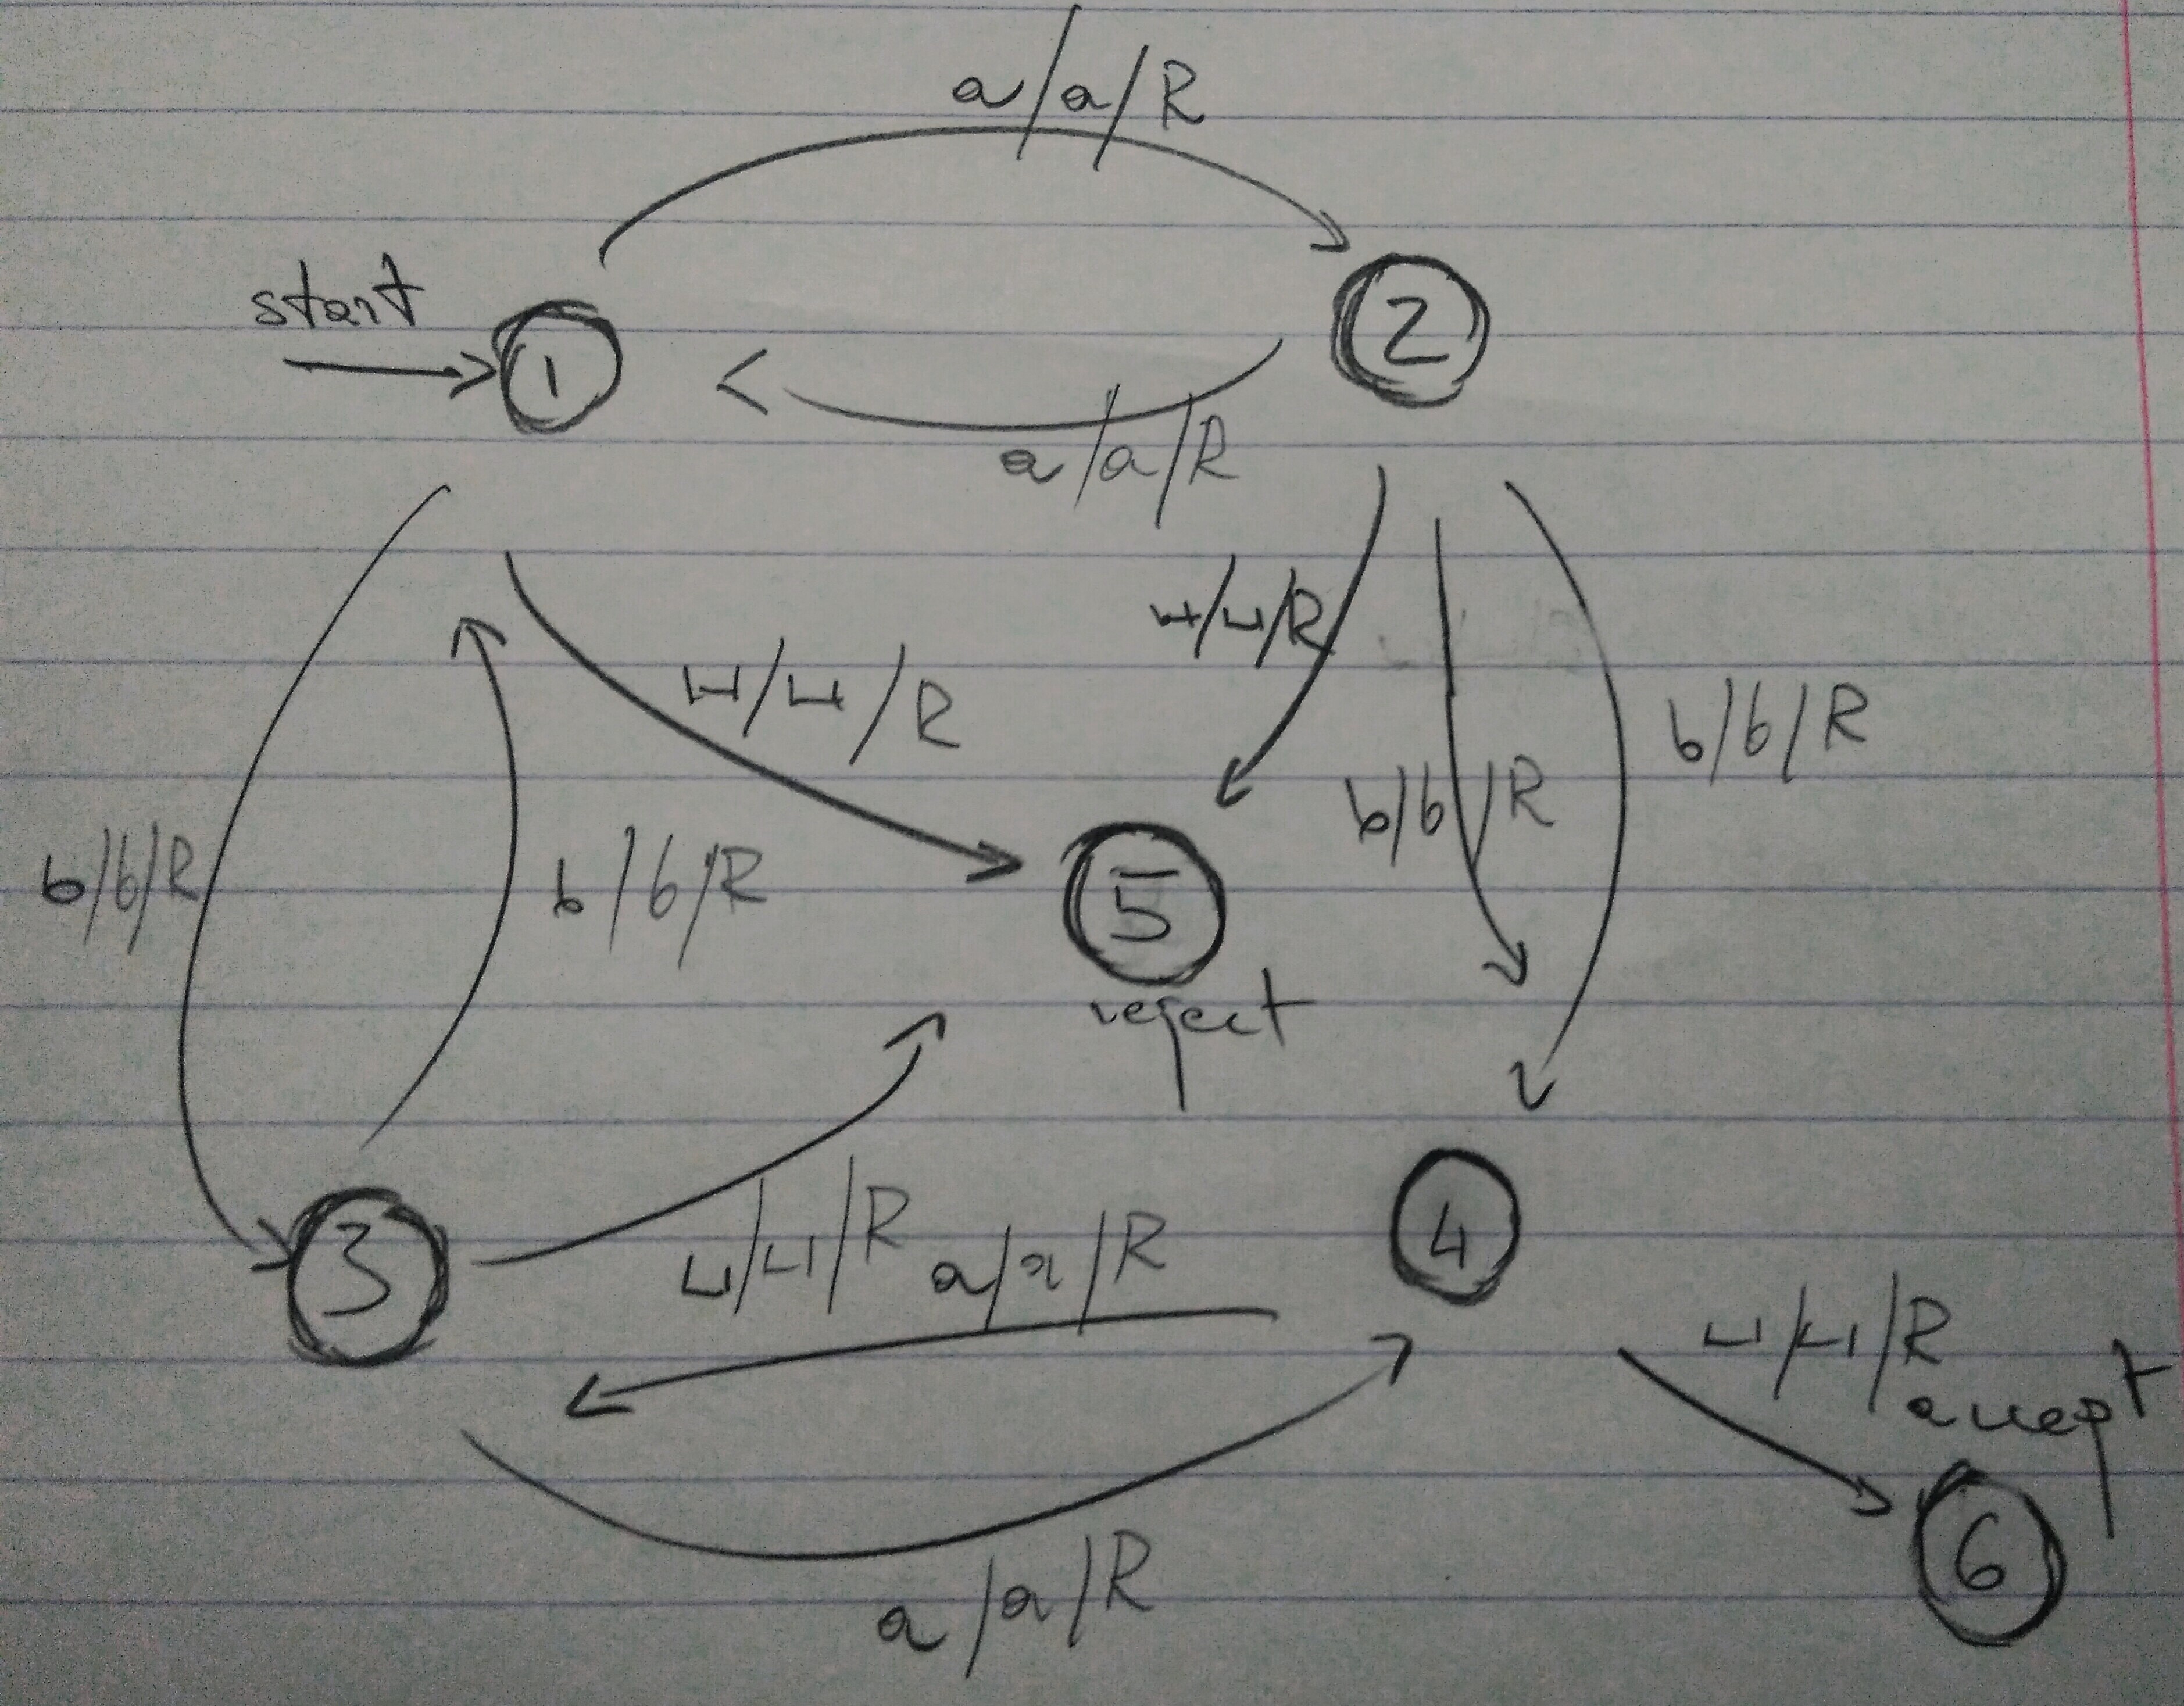 a/a/R
start
1
2
a/a/R
⊔/⊔/R
⊔/⊔/R
b/b/R
b/b/R
b/b/R
b/b/R
5
reject
3
⊔/⊔/R
a/a/R
4
⊔/⊔/R
accept
6
a/a/R